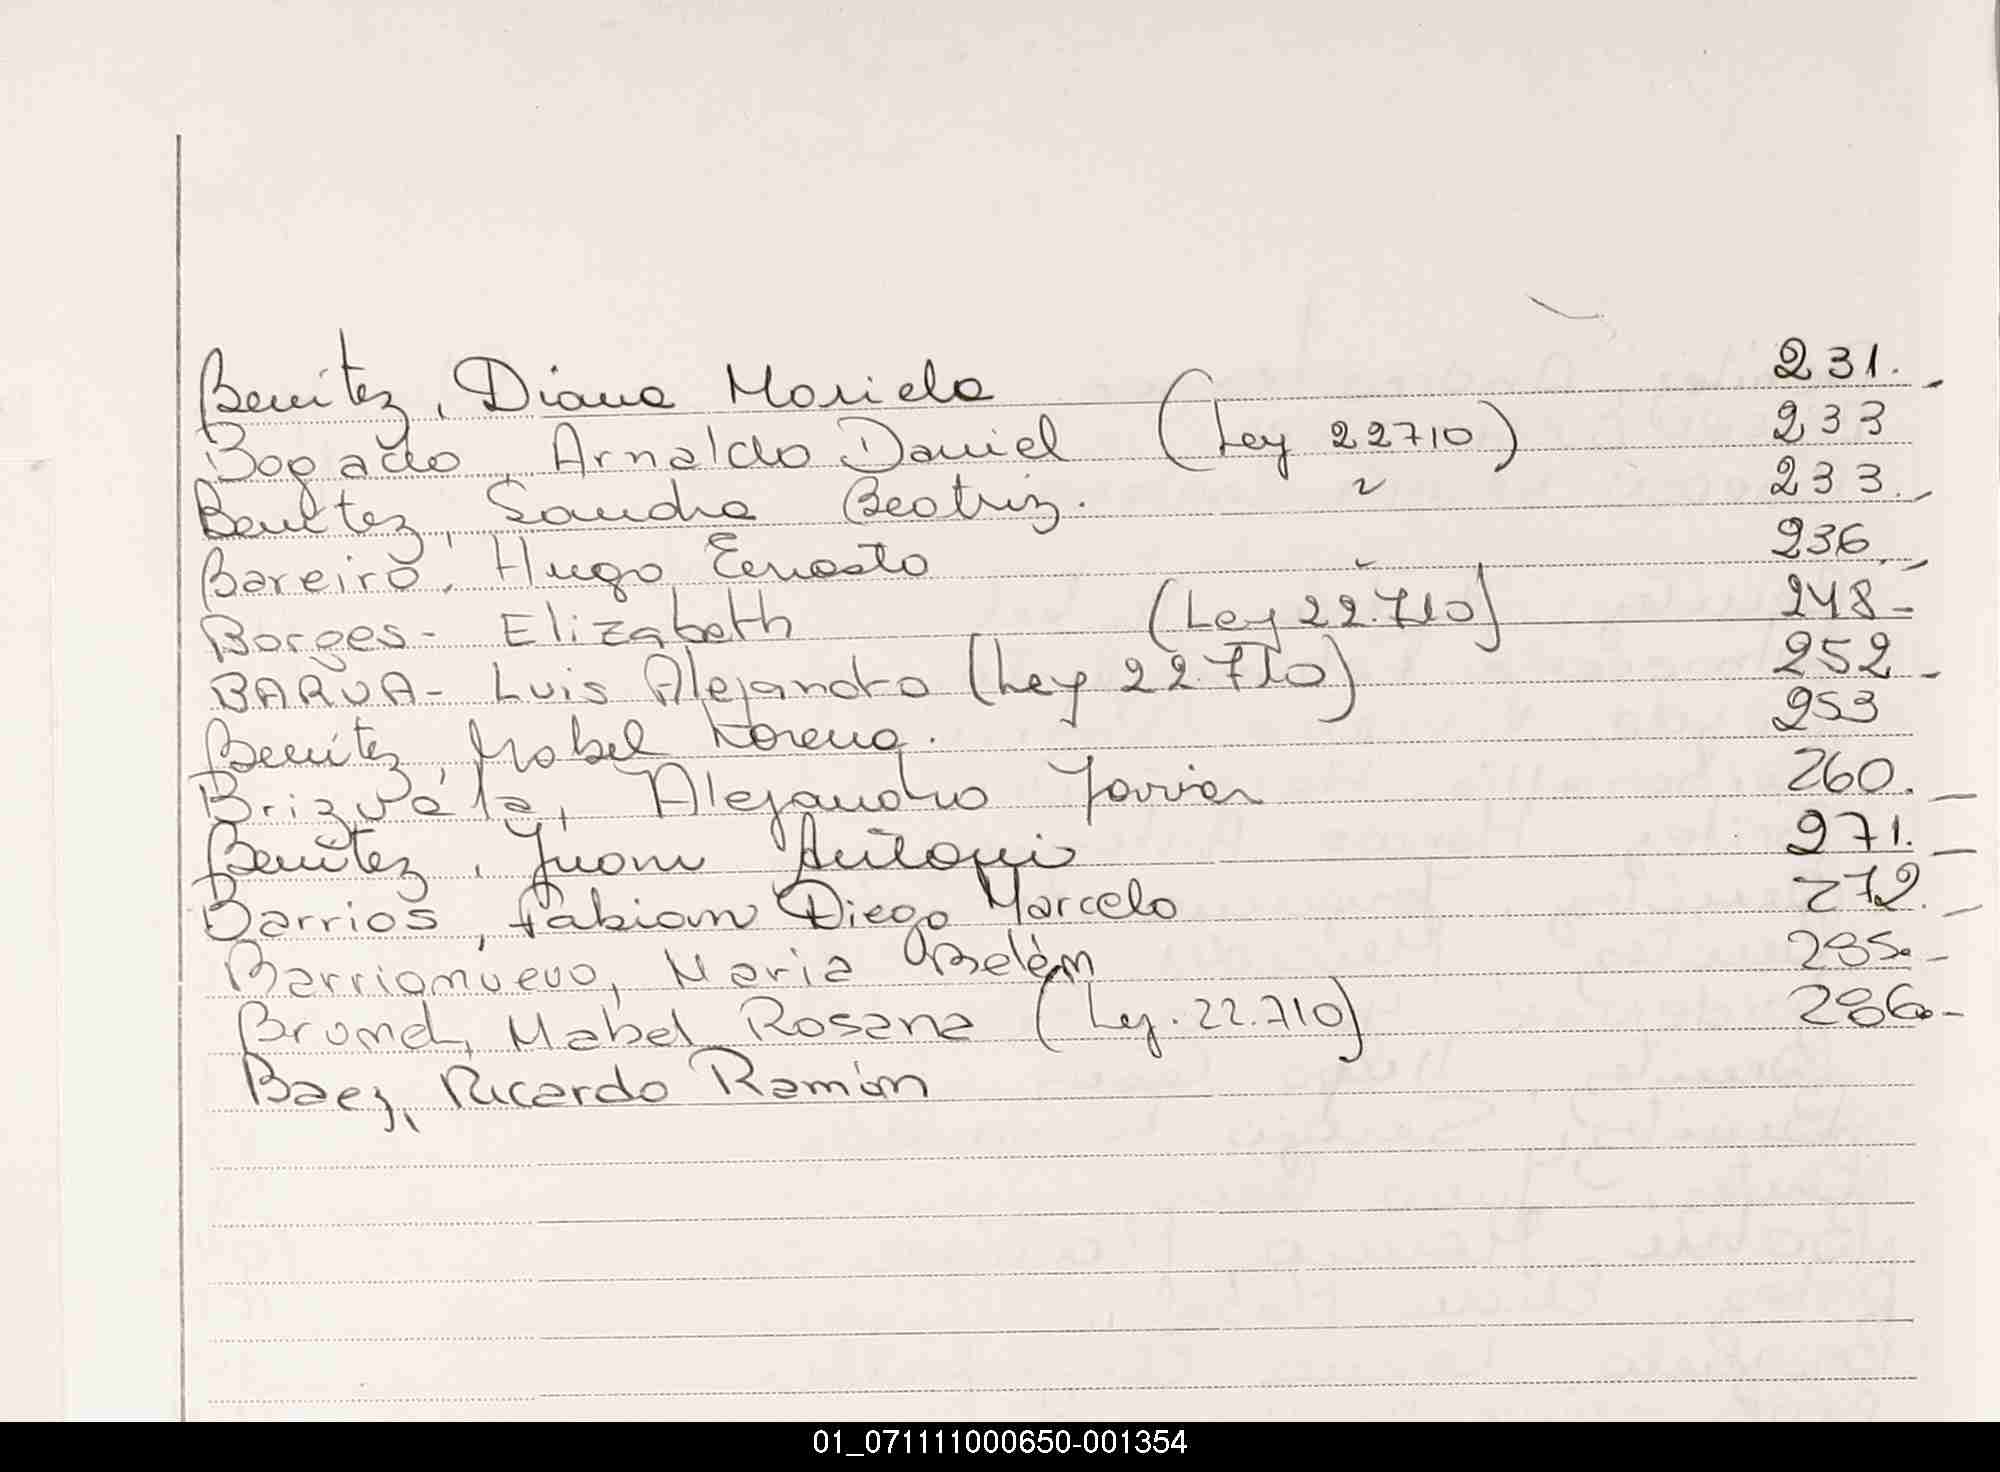 Benitez, Diana Mariela 231.
Bogado, Arnaldo Daniel (Ley 22710) 233
Benitez, Sandra Beatriz. 233.
Bareiro, Hugo Ernesto 236
Borges- Elizabeth (Ley 22.710) 248-
BARUA- Luis Alejandro (Ley 22.710) 252
Benitez, Mabel Lorena. 253
Brizuela, Alejandro Javier 260.
Benitez, Juan Antonio 271.
Barrios, Fabian Diego Marcelo 272.
Barrionuevo, Maria Belén 285.-
Mabel Rosana (Ley. 22.710) 286.-
Baez, Ricardo Ramón
01_071111000650-001354